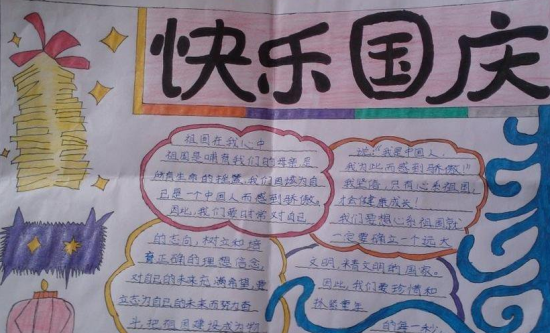 快乐国庆
祖国在我心中
祖国是哺育我们的母亲是
所有生命的摇篮,我们应该为自
己是一个中国人而感到骄傲。
因此,我们要时常对自己
说:"我是中国人,
我为此而感到骄傲!"
我坚信,只有心系祖国,
才会健康成长!
我们要想心系祖国,
一定要确立一个远大
的志向,树立和培
育正确的理想信念,
对自己的未来充满希望,要
立志为自己的未来而努力奋
斗,把祖国建设成为物
文明,精文明的国家。
因此,我们要珍惜和
的每一分